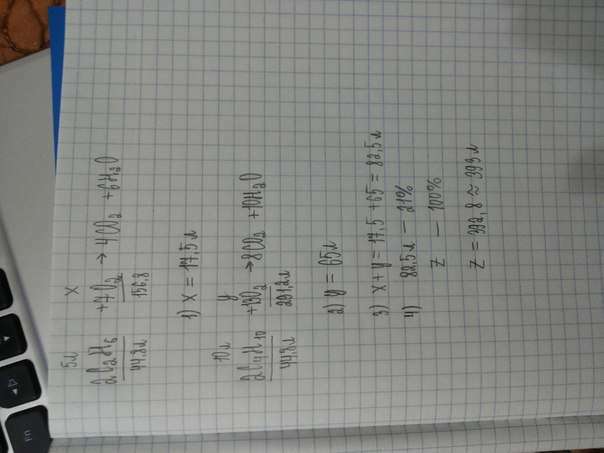 5л x
2C₂H₆ + 7O₂ → 4CO₂ + 6H₂O
44,8л 156,8
1) x = 17,5л
10л y
2C₄H₁₀ + 13O₂ → 8CO₂ + 10H₂O
44,8л 291,2л
2) y = 65л
3) x + y = 17,5 + 65 = 82,5л
4) 82,5л — 21%
z — 100%
z = 392,8 ≈ 393л